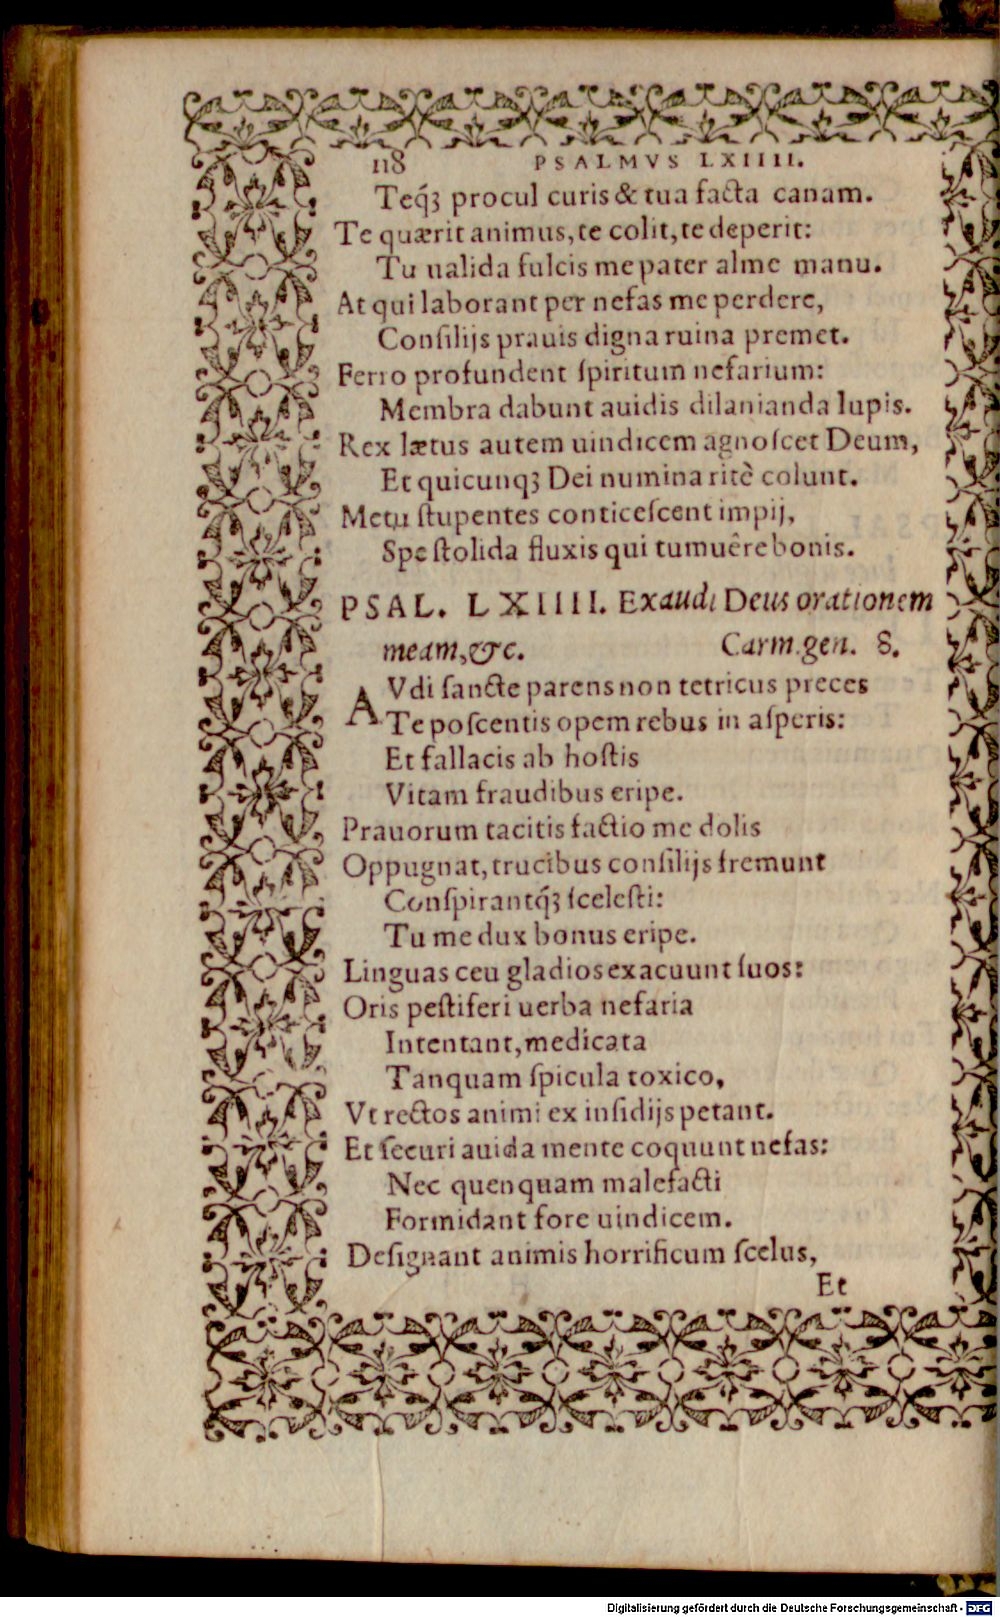 118 PSALMVS LXIIII.
Teq́ꝫ procul curis & tua facta canam.
Te quærit animus, te colit, te deperit:
Tu ualida fulcis me pater alme manu.
At qui laborant per nefas me perdere,
Conſilijs prauis digna ruina premet.
Ferro profundent ſpiritum nefarium:
Membra dabunt auidis dilanianda lupis.
Rex lætus autem uindicem agnoſcet Deum,
Et quicunqꝫ Dei numina ritè colunt.
Metu ſtupentes conticeſcent impij,
Spe ſtolida fluxis qui tumuêre bonis.
PSAL. LXIIII. Exaudi Deus orationem
meam, &c. Carm. gen. 8.
AVdi ſancte parens non tetricus preces
Te poſcentis opem rebus in aſperis:
Et fallacis ab hoſtis
Vitam fraudibus eripe.
Prauorum tacitis factio me dolis
Oppugnat, trucibus conſilijs fremunt
Conſpirantq́ꝫ ſceleſti:
Tu me dux bonus eripe.
Linguas ceu gladios exacuunt ſuos:
Oris peſtiferi uerba nefaria
Intentant, medicata
Tanquam ſpicula toxico,
Vt rectos animi ex inſidijs petant.
Et ſecuri auida mente coquunt nefas:
Nec quenquam malefacti
Formidant fore uindicem.
Deſignant animis horrificum ſcelus,
Et
Digitalisierung gefördert durch die Deutsche Forschungsgemeinschaft - DFG